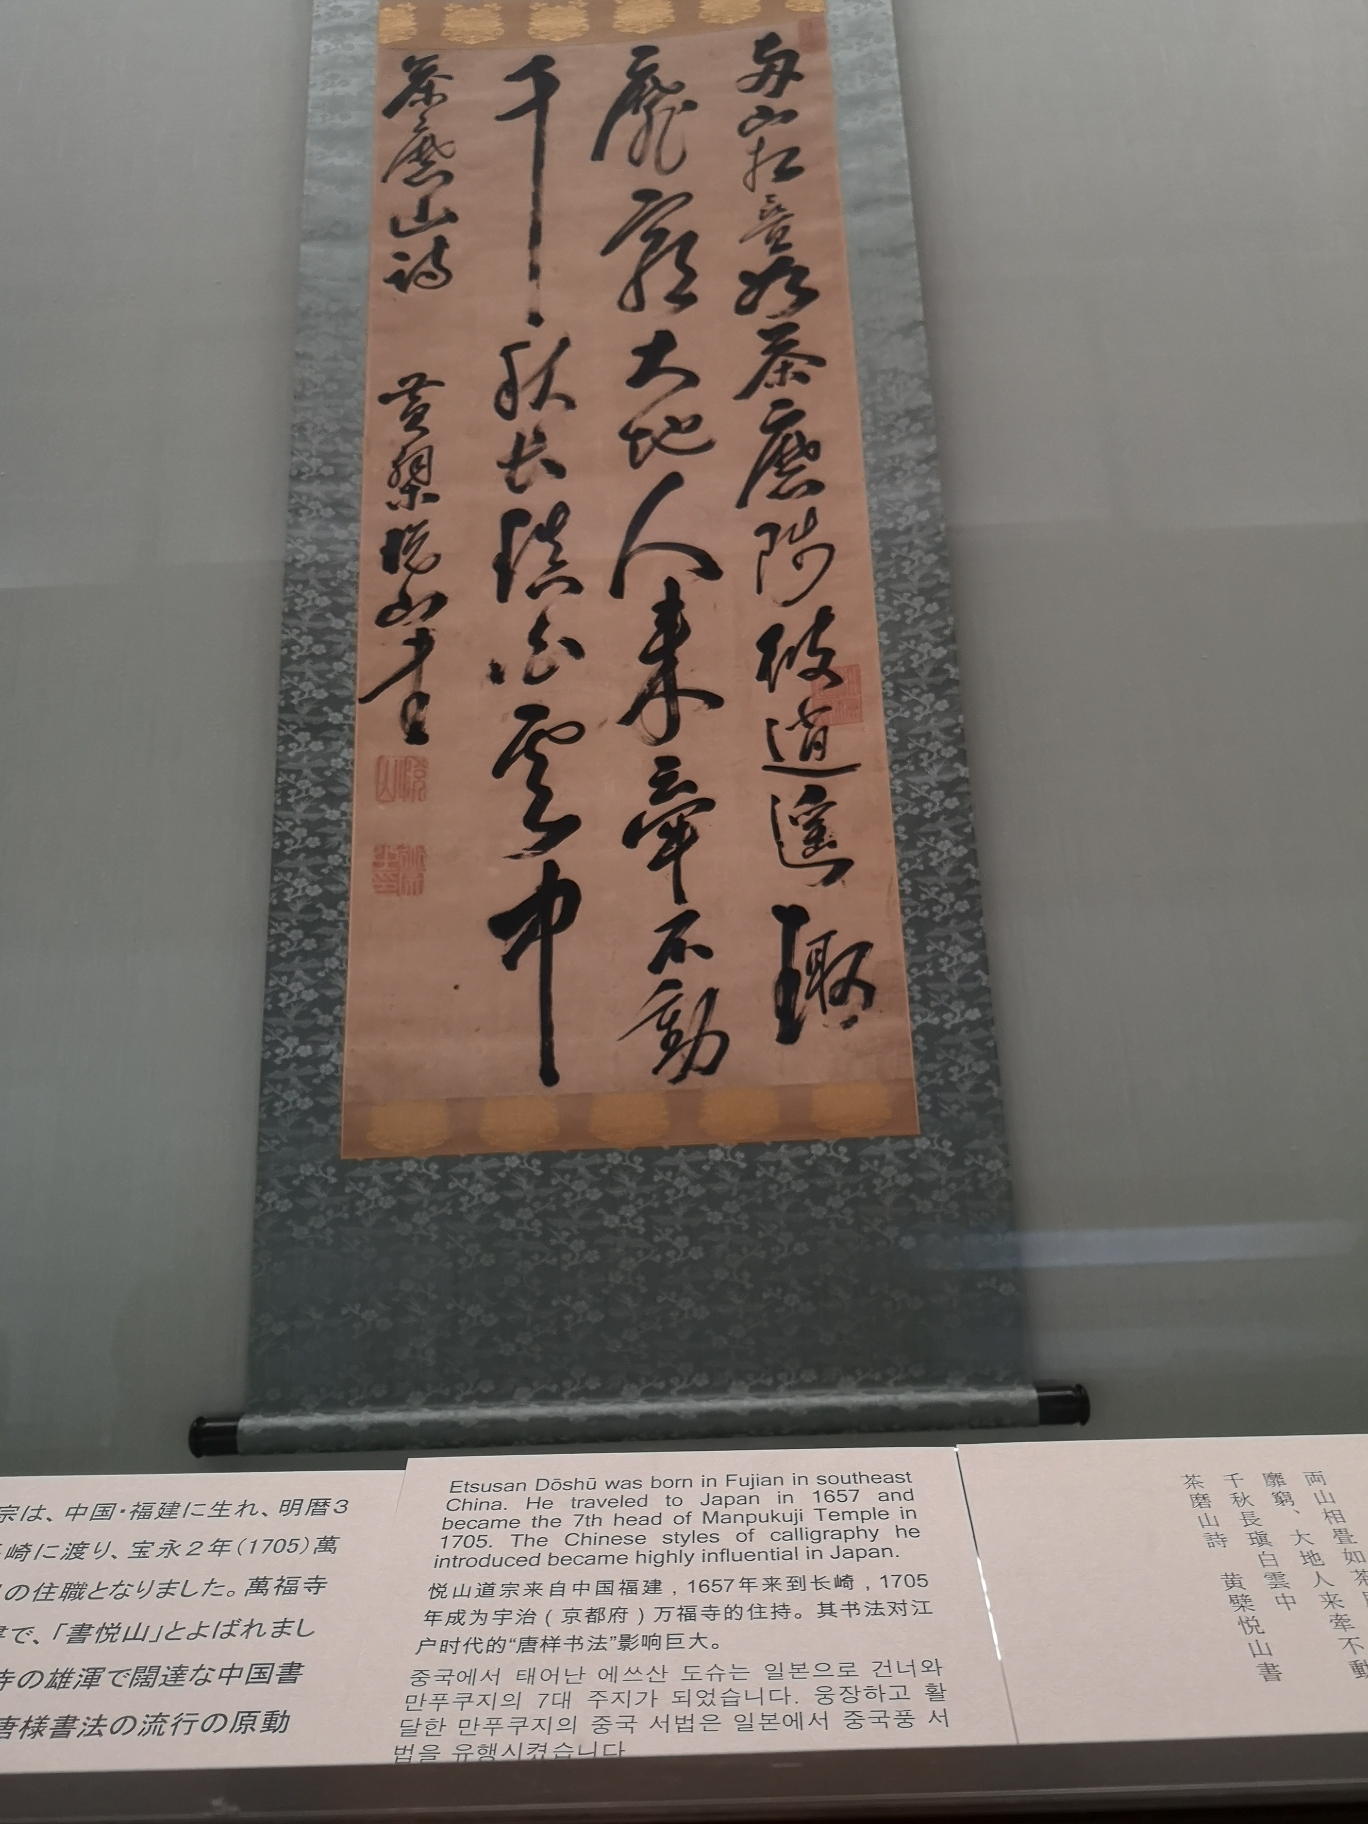 両山相畳如茶磨陟彼逍遥趣
靡窮大地人来牽不動
千秋長瑱白雲中
茶磨山詩 黄檗悦山書
悦山
宗は、中国・福建に生れ、明暦3
崎に渡り、宝永2年(1705)萬
の住職となりました。萬福寺
で、「書悦山」とよばれまし
寺の雄渾で闊達な中国書
唐様書法の流行の原動
Etsusan Dōshū was born in Fujian in southeast
China. He traveled to Japan in 1657 and
became the 7th head of Manpukuji Temple in
1705. The Chinese styles of calligraphy he
introduced became highly influential in Japan.
悦山道宗来自中国福建，1657年来到长崎，1705
年成为宇治（京都府）万福寺的住持。其书法对江
户时代的“唐样书法”影响巨大。
중국에서 태어난 에쓰산 도슈는 일본으로 건너와
만푸쿠지의 7대 주지가 되었습니다. 웅장하고 활
달한 만푸쿠지의 중국 서법은 일본에서 중국풍 서
법을 유행시켰습니다
両山相畳如茶
靡窮、大地人来牽不動
千秋長瑱白雲中
茶磨山詩 黄檗悦山書